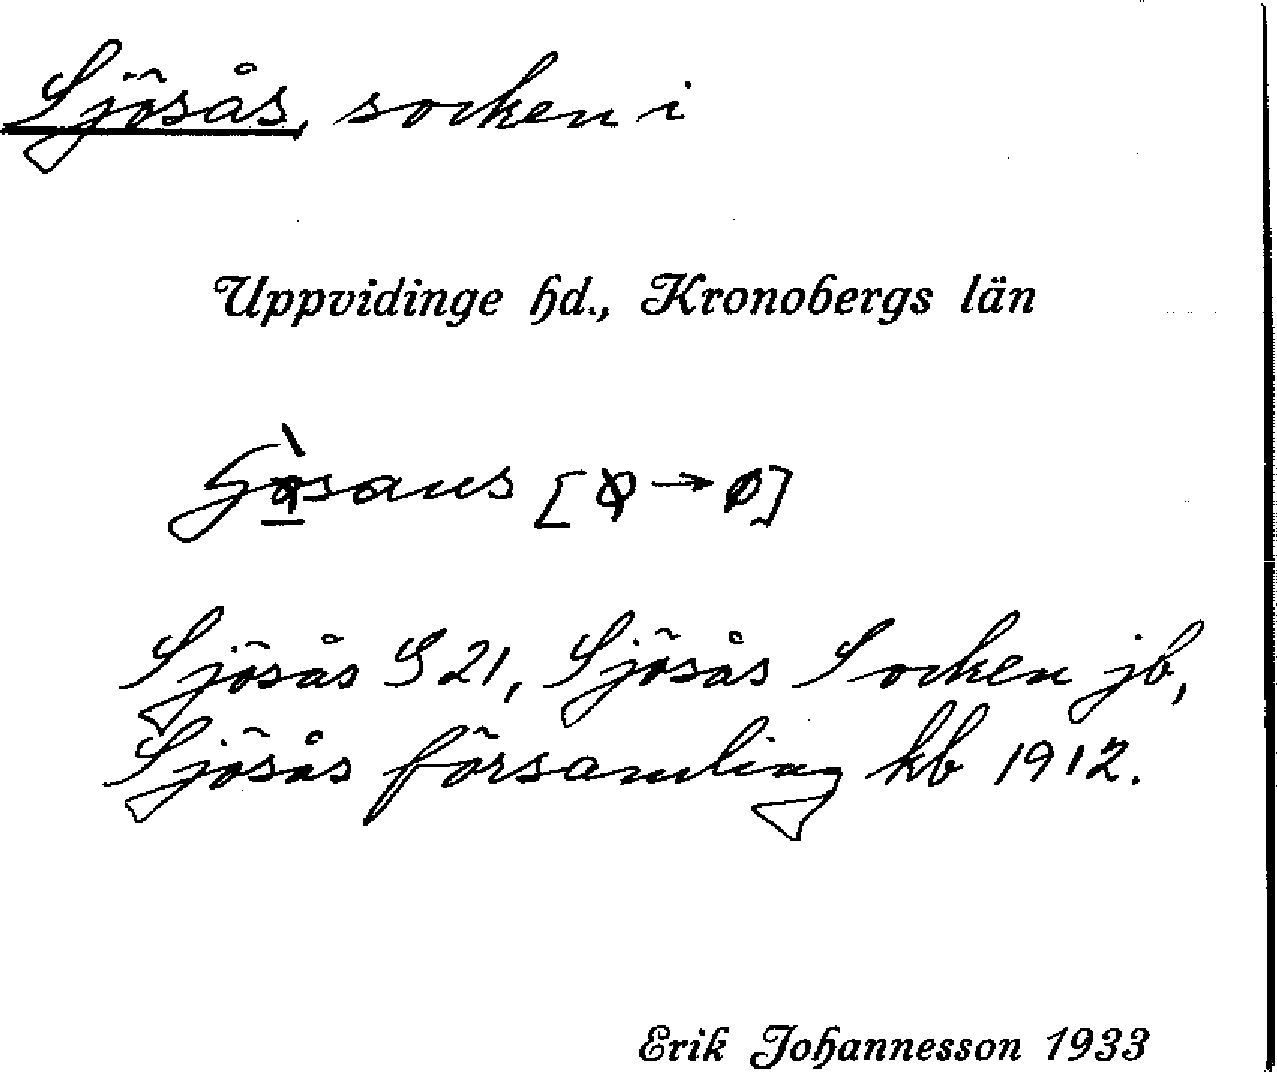 Sjösås, socken i
Uppvidinge hd., Kronobergs län
[ → ø]
Sjösås S 21, Sjösås Socken jb,
Sjösås församling kb 1912.
Erik Johannesson 1933